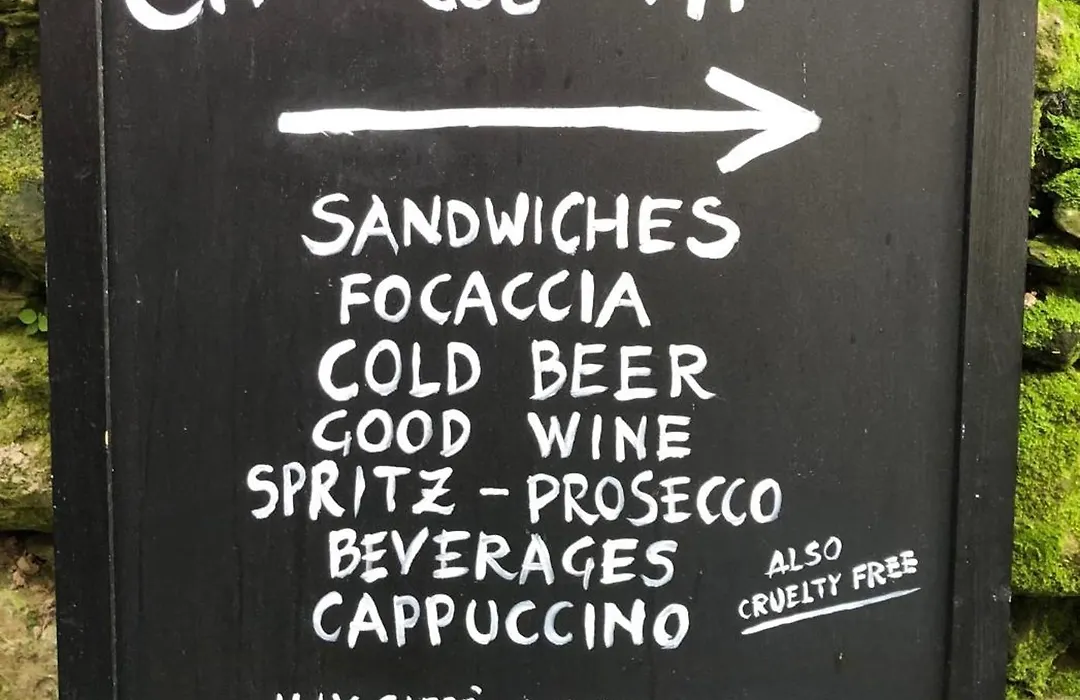 SANDWICHES
FOCACCIA
COLD BEER
GOOD WINE
SPRITZ - PROSECCO
BEVERAGES
CAPPUCCINO
ALSO
CRUELTY FREE